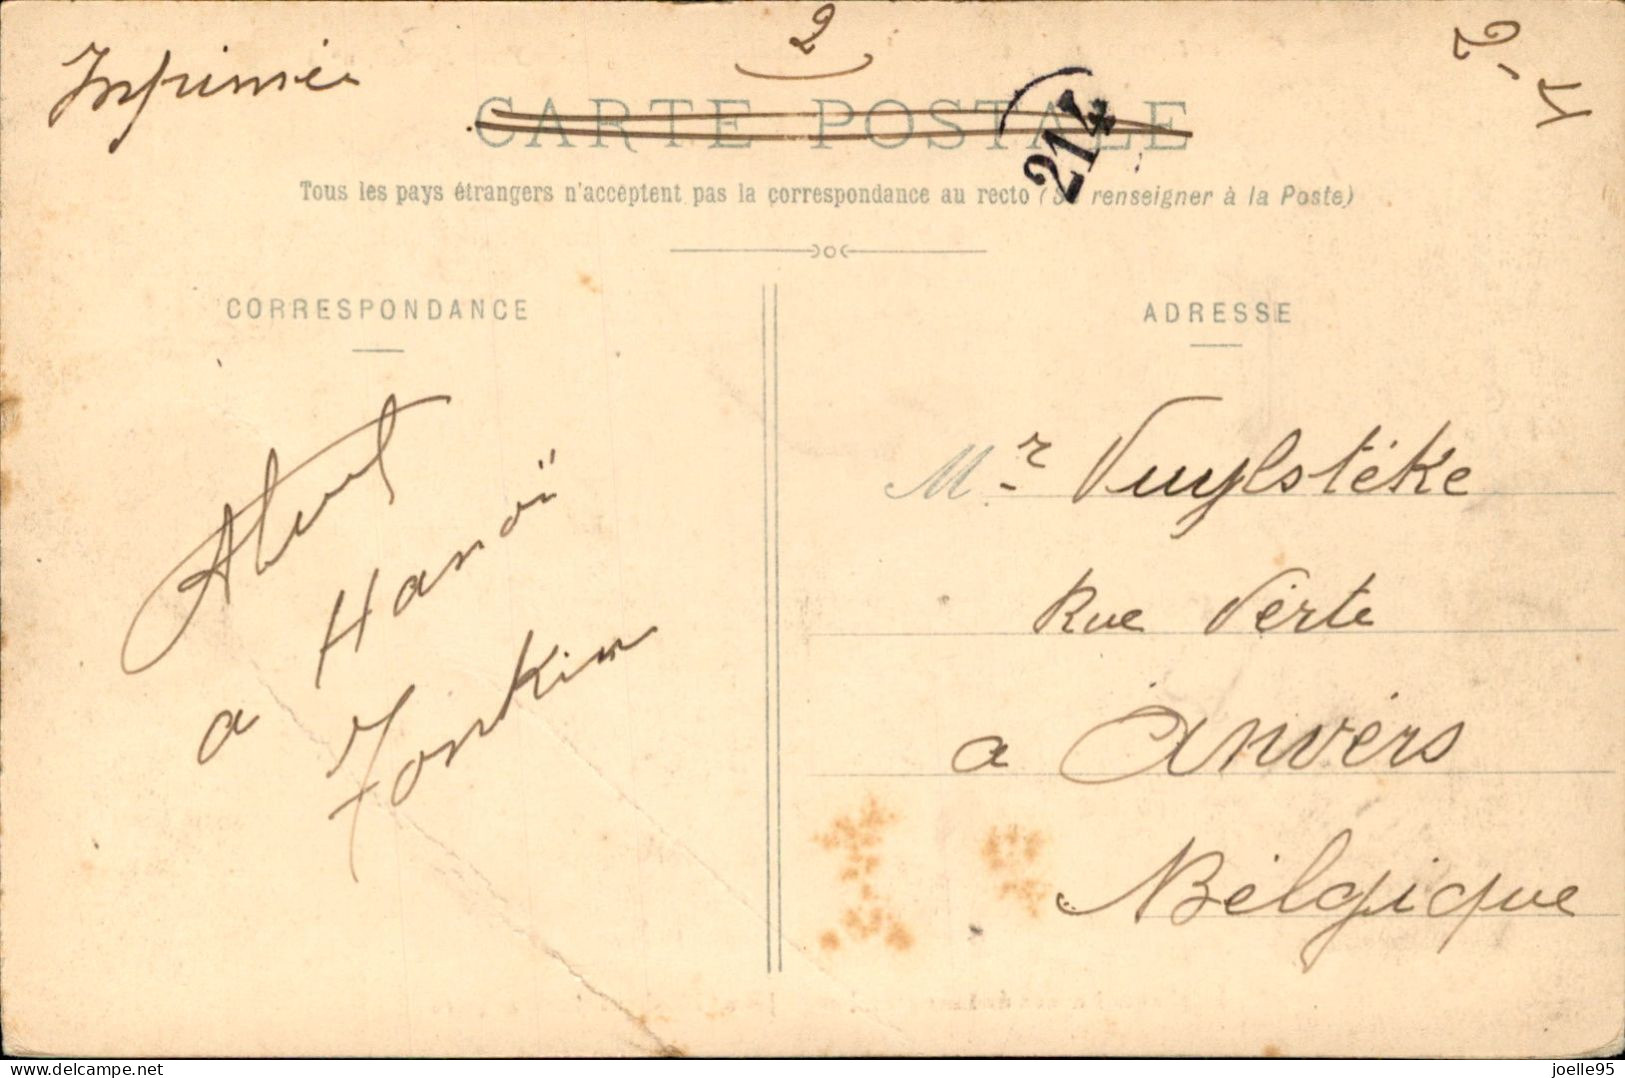 2
2-1
Imprimée
CARTE POSTALE
214
Tous les pays étrangers n'acceptent pas la correspondance au recto (Se renseigner à la Poste)
CORRESPONDANCE
Albert
a Hanoï
Tonkin
ADRESSE
Mr Vuylstéke
Rue Vérte
a Anvérs
Bélgique
delcampe.net
joelle95